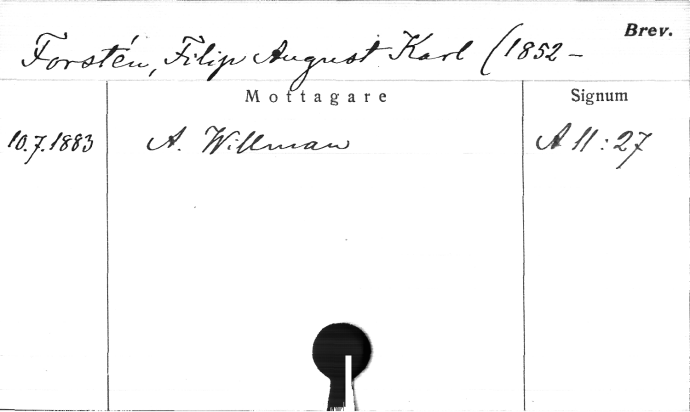 Brev.
Forstén, Filip August Karl (1852 –
Mottagare Signum
10.7.1883 A. Willman A 11:27